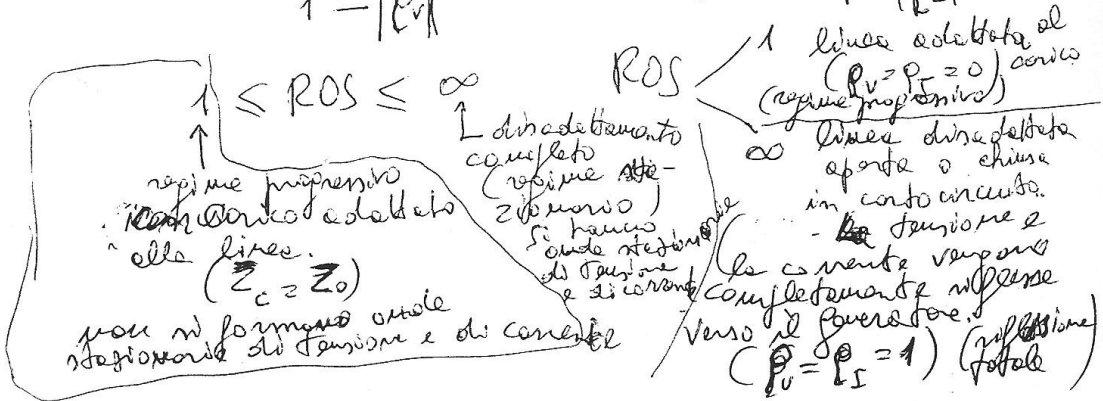 1 - |ρv|
1 ≤ ROS ≤ ∞
regime progressivo
con carico adattato
alla linea.
(Zc = Z0)
non si formano onde
stazionarie di tensione e di corrente
disadattamento
completo
(regime sta-
zionario)
Si hanno
onde stazionarie
di tensione
e di corrente
ROS
1 linea adattata al
carico
(ρv = ρI = 0)
(regime progressivo)
∞ linea disadattata
aperta o chiusa
in cortocircuito.
- La tensione e
la corrente vengono
completamente riflesse
verso il generatore.
(ρv = ρI = 1) (riflessione
totale)